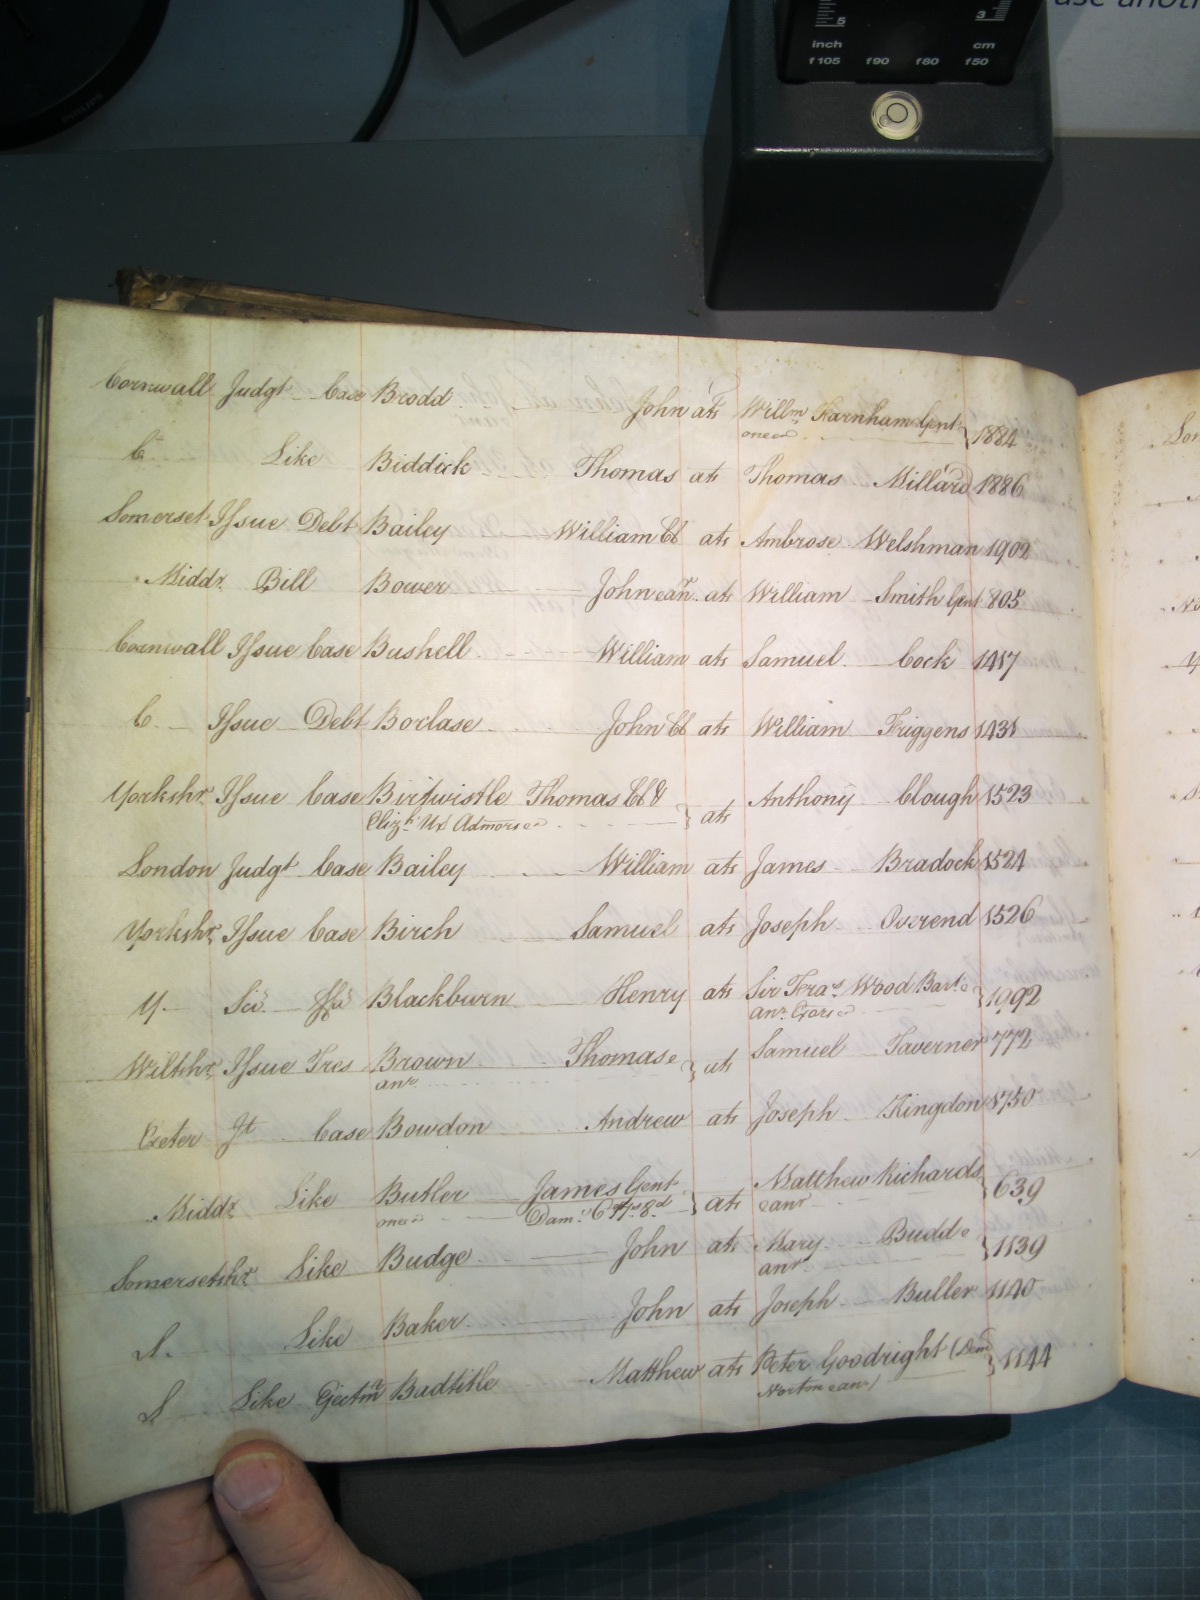 use anoth
5 3
inch cm
f105 f90 f80 f50
PHILIPS
Cornwall Judgt Case Brodd John ats Willm Farnham Gent 1884
one &c
C Like Biddick Thomas ats Thomas Millard 1886
Somerset Issue Debt Bailey William Cl ats Ambrose Welshman 1902
Middx Bill Bower John & anr ats William Smith Gent 805
Cornwall Issue Case Bushell William ats Samuel Cock 1417
C. Issue Debt Borlase John Cl ats William Friggens 1431
Yorkshr Issue Case Birtwistle Thomas Cl & ats Anthony Clough 1523
Elizh Ux Admors &c
London Judgt Case Bailey William ats James Bradock 1524
Yorkshr Issue Case Birch Samuel ats Joseph Overend 1526
Y. Sci Fa Blackburn Henry ats Sir Fras Wood Bart & 1992
anr Exors &c
Wiltshr Issue Tres Brown Thomas & ats Samuel Taverner 772
anr
Exeter Jt Case Bowdon Andrew ats Joseph Kingdon 1750
Middx Like Butler James Gent ats Matthew Richards 639
one &c Dams 6 17s 8d & anr
Somersetshr Like Budge John ats Mary Budd & 1139
anr
S. Like Baker John ats Joseph Buller 1140
S Like Ejectmt Badtitle Matthew ats Peter Goodright (Dem 1144
Norton & anr)